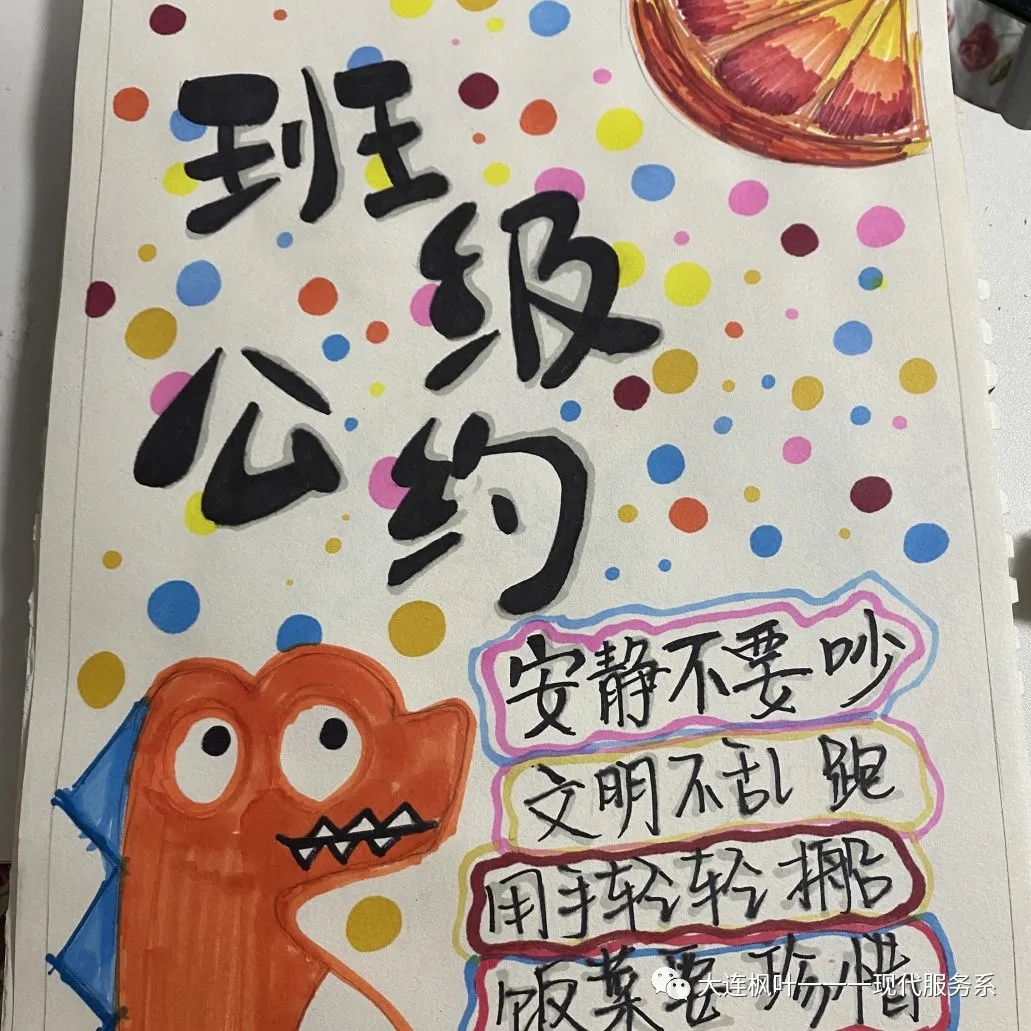 班级
公约
安静不要吵
文明不乱跑
用手轻轻搬
饭菜要珍惜
大连枫叶———现代服务系